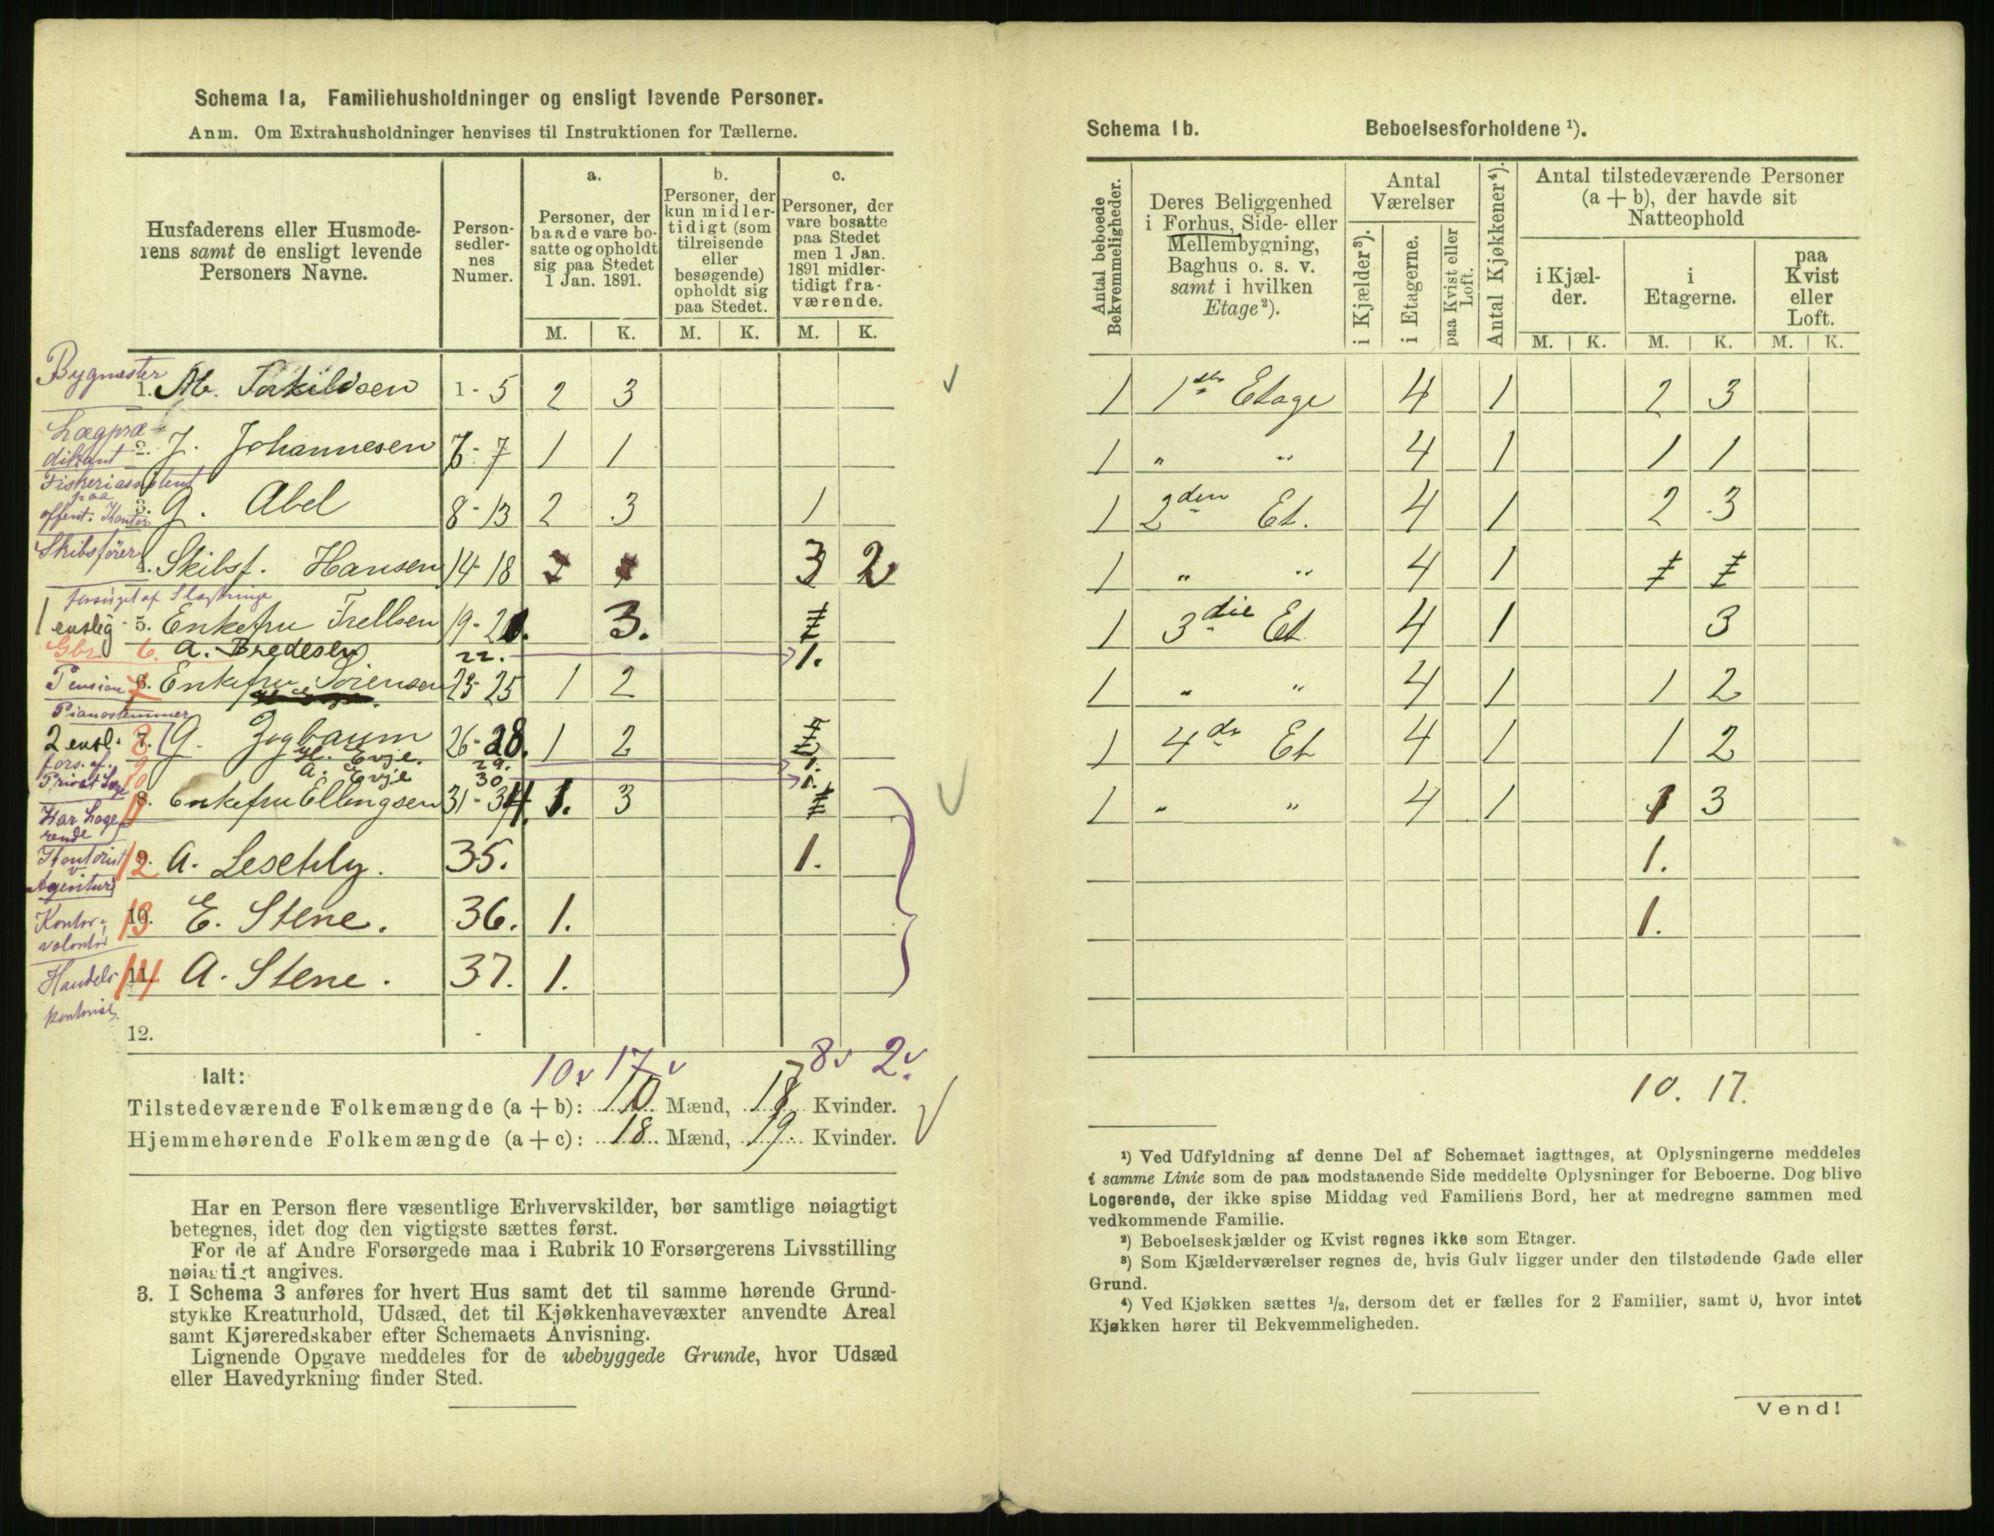 Schema 1a, Familiehusholdninger og ensligt levende Personer.
Anm. Om Extrahusholdninger henvises til Instruktionen for Tællerne.
Husfaderens eller Husmoderens samt de ensligt levende Personers Navne.
Personsedlernes Numer.
a. Personer, der baade vare bosatte og opholdt sig paa Stedet 1 Jan. 1891.
b. Personer, der kun midlertidigt (som tilreisende eller besøgende) opholdt sig paa Stedet.
c. Personer, der vare bosatte paa Stedet men 1 Jan. 1891 midlertidigt fraværende.
M. K. M. K. M. K.
Bygmester
1. M. Torkildsen 1-5 2 3
Lægprædikant
2. J. Johannesen 6-7 1 1
Fiskeriassistent paa offent. Kontor
3. G. Abel 8-13 2 3 1
Skibsfører
4. Skibsf. Hansen 14-18 3 2
Forsørget af Slægtninge
1 enslig 5. Enkefru Trellsen 19-21. 3.
6. A. Bredesen 22. 1.
Pension 6. 7 Enkefru Sørensen 23-25 1 2
Pianostemmer
2 ensl. 7. 8 G. Zogbaum 26-28. 1 2
fors. af 9 H. Evje. 29. 1.
Privat 10 A. Evje 30 1.
8. 11 Enkefru Ellingsen 31-34. 1. 3
Har Logerende
Kontorist v. Agentur
9. 12 A. Leschly. 35. 1.
Kontorvolontør
10. 13 E. Stene. 36. 1.
Handelskontorist
11. 14 A. Stene. 37. 1.
12.
10 v 17 v 8 v 2 v.
Ialt:
Tilstedeværende Folkemængde (a + b): 10 Mænd, 17 Kvinder.
Hjemmehørende Folkemængde (a + c): 18 Mænd, 19 Kvinder.
Har en Person flere væsentlige Erhvervskilder, bør samtlige nøiagtigt
betegnes, idet dog den vigtigste sættes først.
For de af Andre Forsørgede maa i Rubrik 10 Forsørgerens Livsstilling
nøiagtigt angives.
3. I Schema 3 anføres for hvert Hus samt det til samme hørende Grund-
stykke Kreaturhold, Udsæd, det til Kjøkkenhavevæxter anvendte Areal
samt Kjøreredskaber efter Schemaets Anvisning.
Lignende Opgave meddeles for de ubebyggede Grunde, hvor Udsæd
eller Havedyrkning finder Sted.
Schema 1b. Beboelsesforholdene ¹).
Antal beboede Bekvemmeligheder.
Deres Beliggenhed i Forhus, Side- eller Mellembygning, Baghus o. s. v. samt i hvilken Etage ²).
Antal Værelser
i Kjælder ³).
i Etagerne.
paa Kvist eller Loft.
Antal Kjøkkener ⁴).
Antal tilstedeværende Personer (a + b), der havde sit Natteophold
i Kjælder.
i Etagerne.
paa Kvist eller Loft.
M. K. M. K. M. K.
1 1ste Etage 4 1 2 3
1 " " 4 1 1 1
1 2den Et. 4 1 2 3
1 " " 4 1
1 3die Et 4 1 3
1 " " 4 1 1 2
1 4de Et 4 1 1 2
1 " " 4 1 1 3
1.
1.
10. 17.
¹) Ved Udfyldning af denne Del af Schemaet iagttages, at Oplysningerne meddeles
i samme Linie som de paa modstaaende Side meddelte Oplysninger for Beboerne. Dog blive
Logerende, der ikke spise Middag ved Familiens Bord, her at medregne sammen med
vedkommende Familie.
²) Beboelseskjælder og Kvist regnes ikke som Etager.
³) Som Kjælderværelser regnes de, hvis Gulv ligger under den tilstødende Gade eller
Grund.
⁴) Ved Kjøkken sættes ½, dersom det er fælles for 2 Familier, samt 0, hvor intet
Kjøkken hører til Bekvemmeligheden.
Vend!